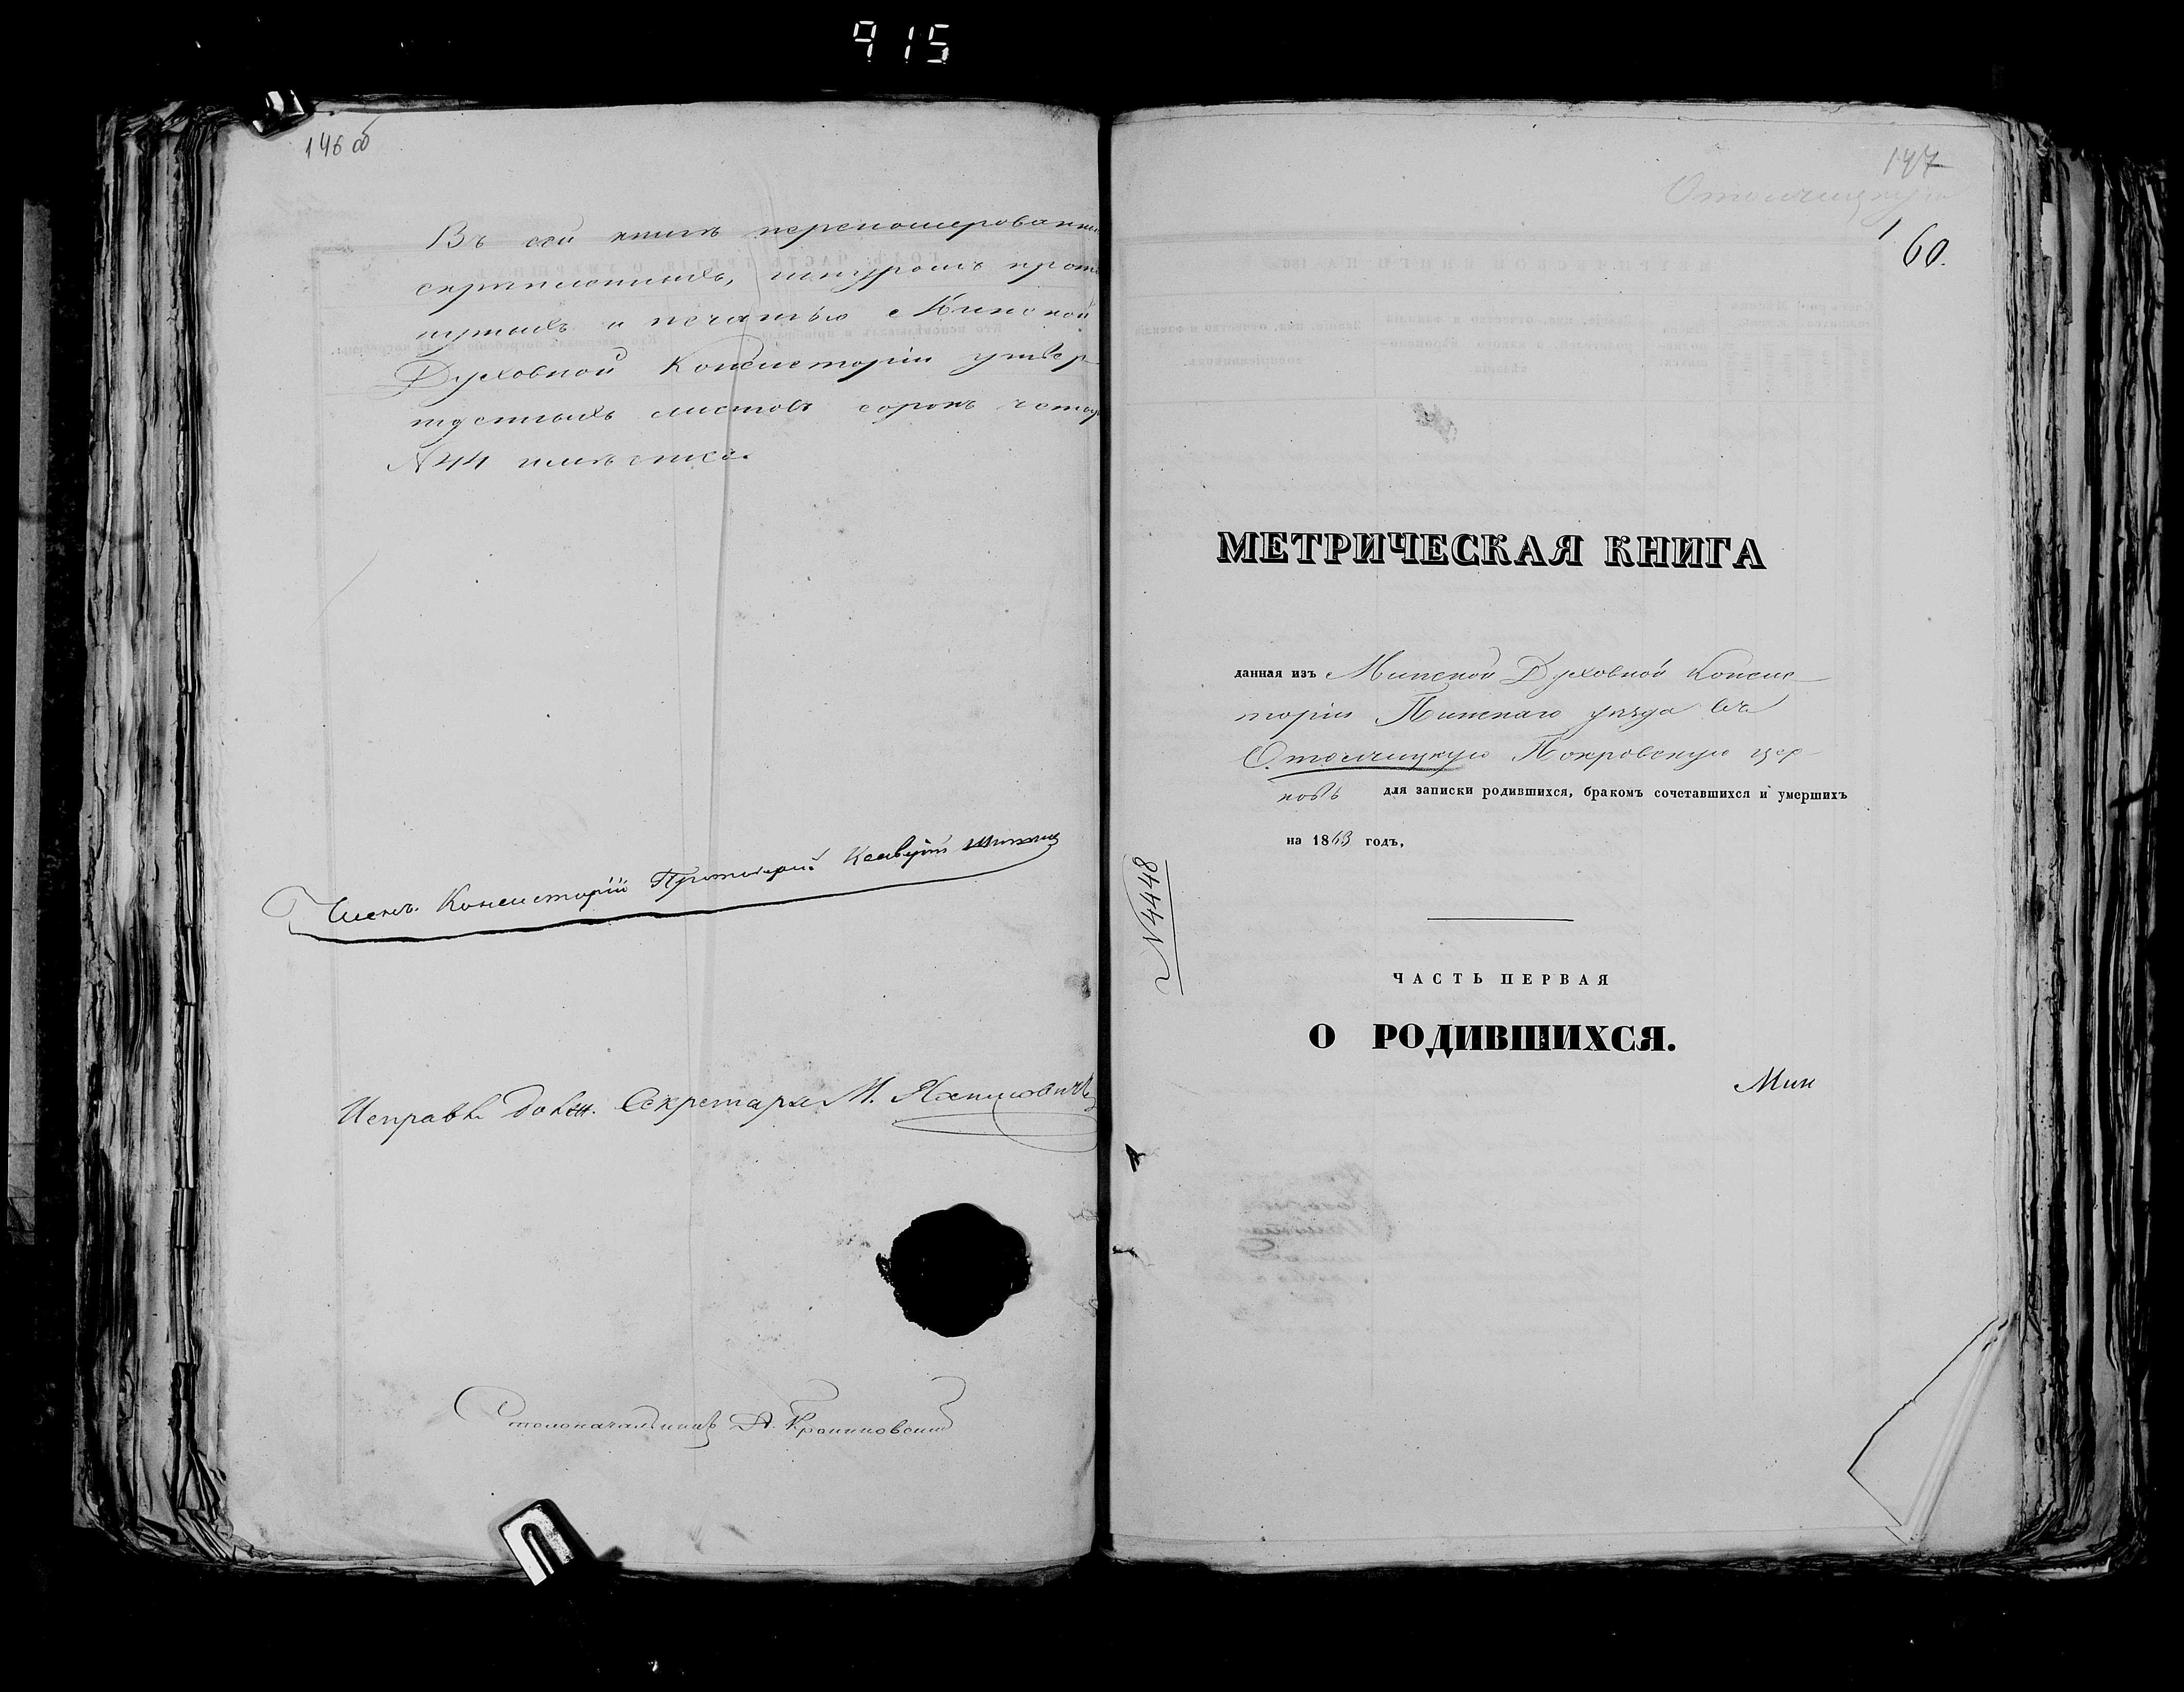 915
146 об
Въ сей книгѣ переномерованны
скрѣпленныхъ, шнуромъ прош
нутыхъ и печатью Минской
Духовной Консисторіи утвер
жденныхъ листовъ сорокъ четы
№ 44 имѣется.
Членъ Консисторіи Протоіерей
Исправл. долж. Секретаря М.
Столоначальникъ А.
147
Отолчицкую
1
60.
МЕТРИЧЕСКАЯ КНИГА
данная изъ Минской Духовной Консис-
торіи Пинскаго уѣзда въ
Отолчицкую Покровскую цер-
ковь для записки родившихся, бракомъ сочетавшихся и умершихъ
на 1863 годъ,
№ 4448
ЧАСТЬ ПЕРВАЯ
О РОДИВШИХСЯ.
Мин